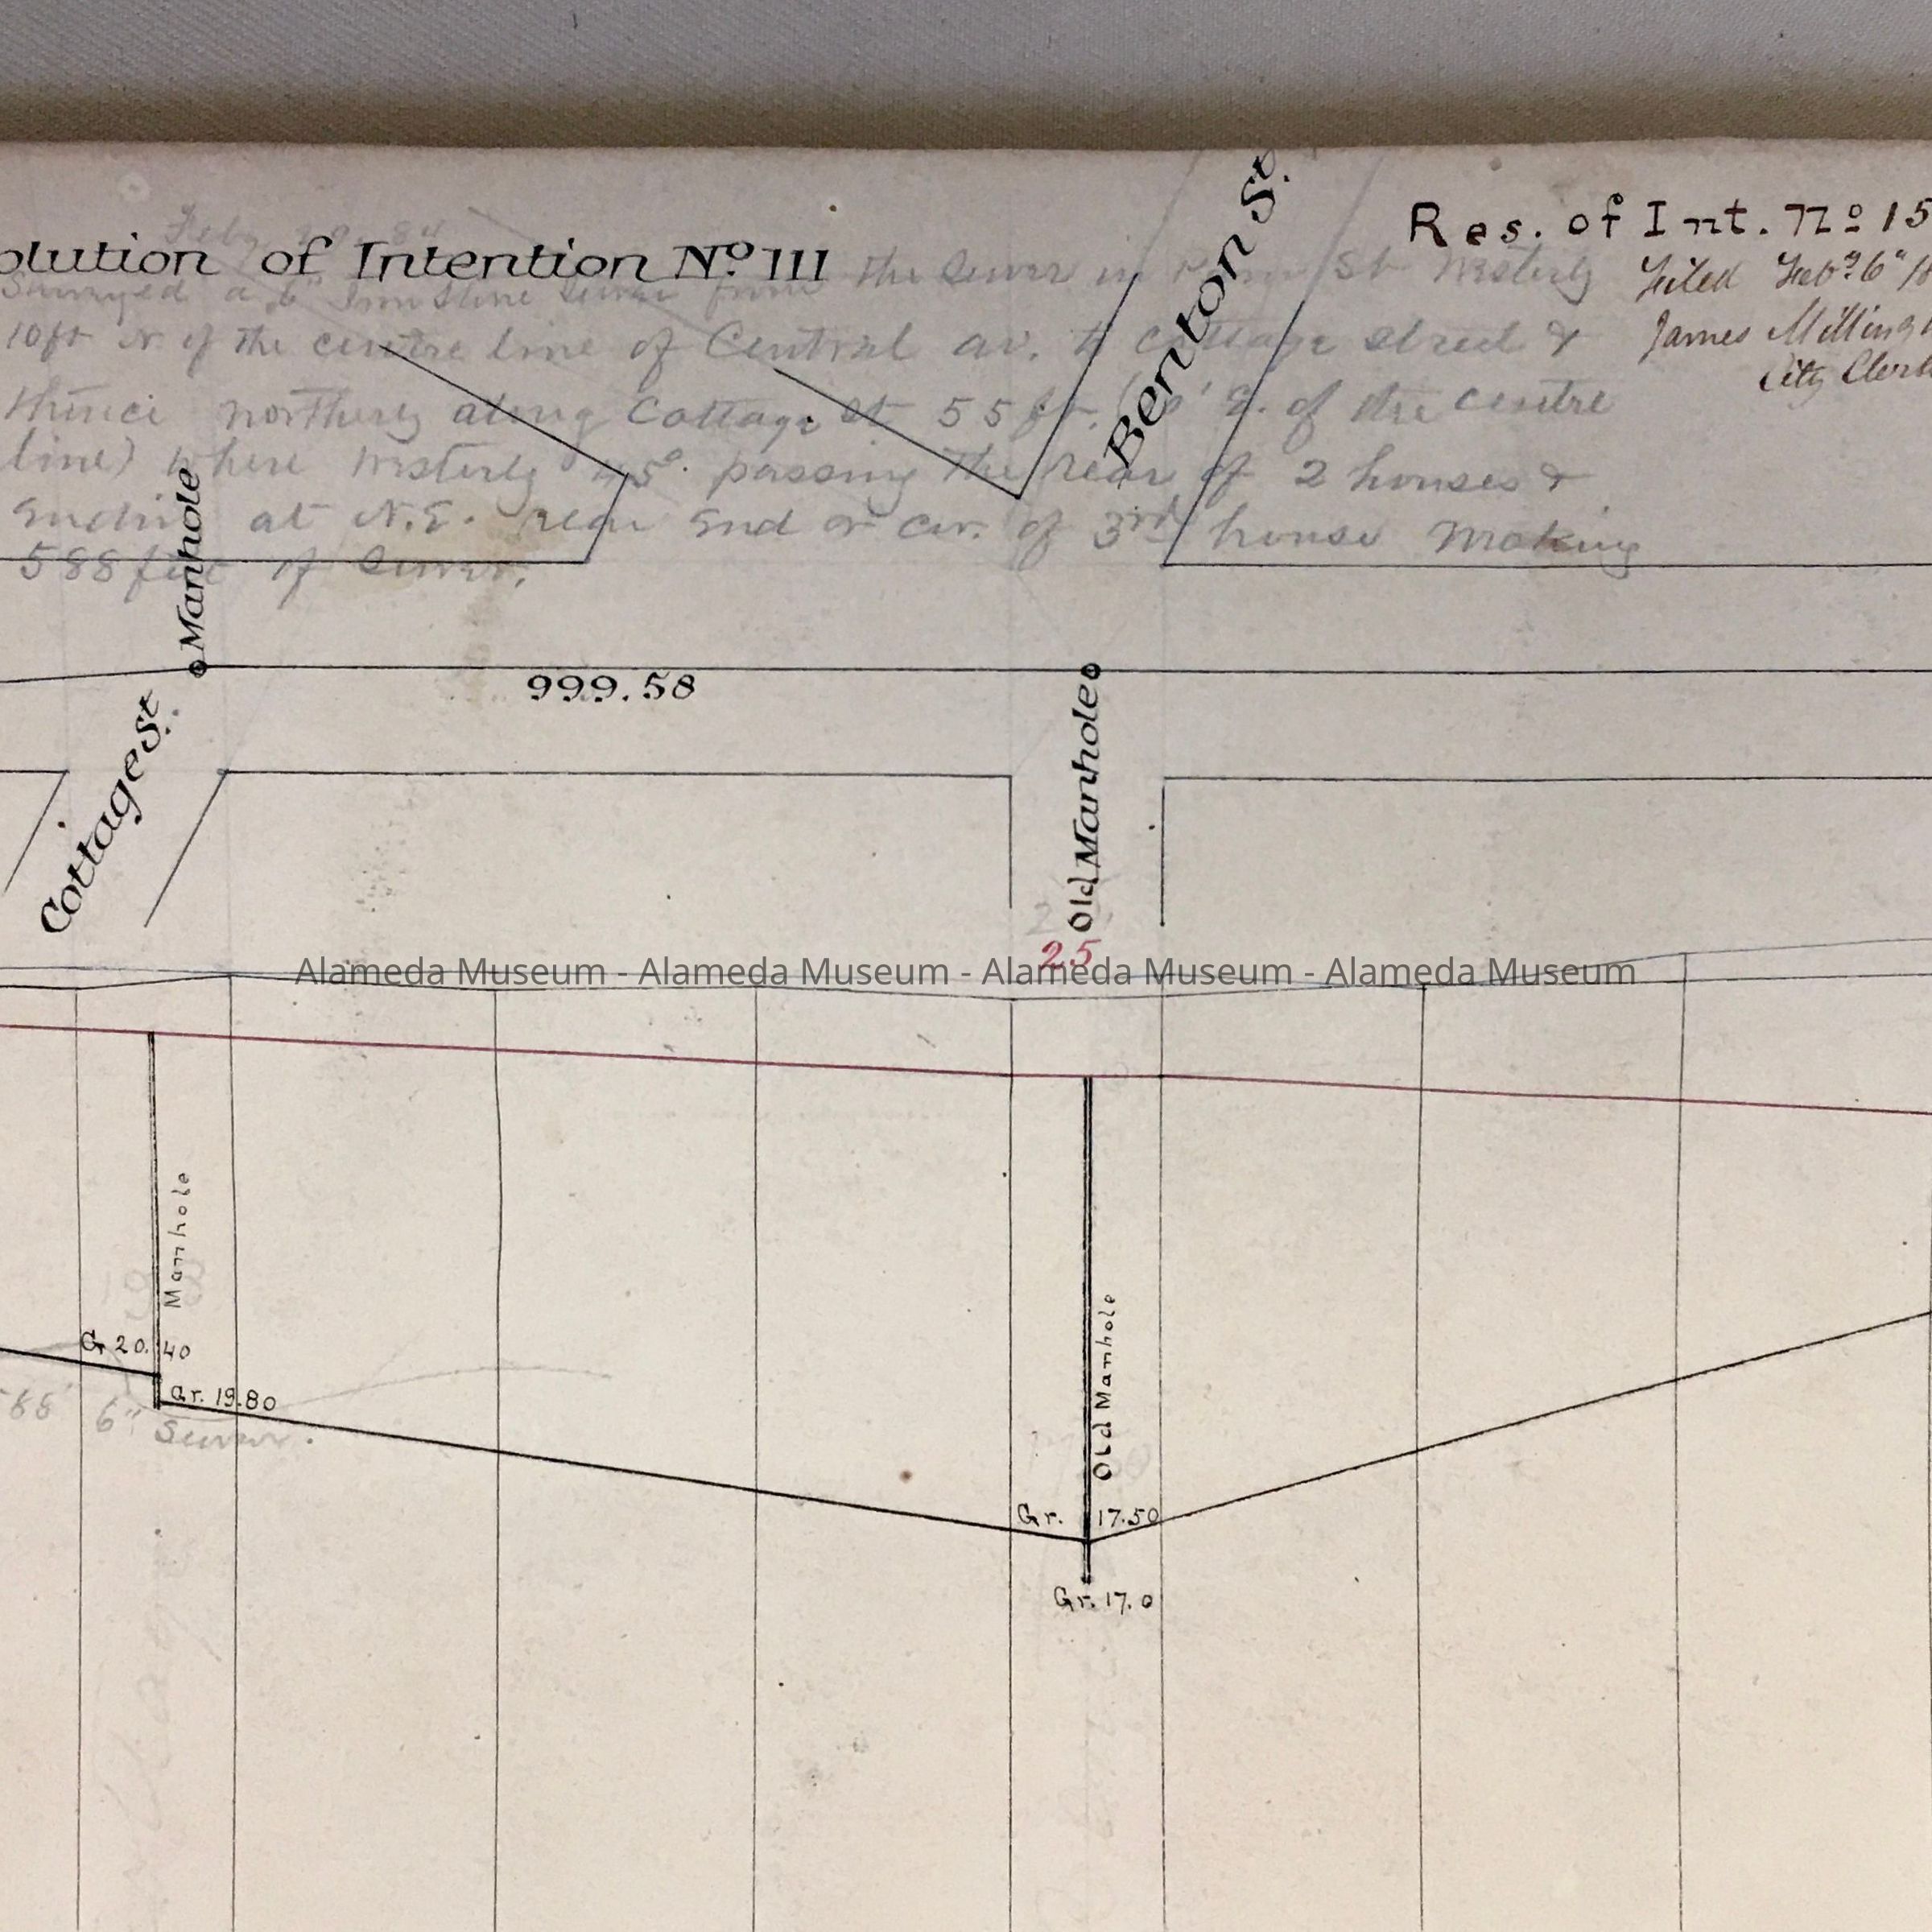 olution of Intention No. 111
Surveyed a 6" Ironstone Sewer from the Sewer in St Westerly
10ft N. of the centre line of Central av. to Cottage street &
thence northerly along Cottage St 55 ft. E. of the centre
line) where Westerly 45° passing the rear of 2 houses &
Ending at N.E. rear End or cor. of 3rd house Making
588 feet of Sewer.
Benton St.
Res. of Int. No 15
Filed Feb 6"
James Milling
City Clerk
Manhole
999.58
Cottage St.
Old Manhole
25
Alameda Museum - Alameda Museum - Alameda Museum - Alameda Museum
Manhole
G 20.40
Gr. 19.80
6" Sewer.
Old Manhole
Gr. 17.50
Gr. 17.0